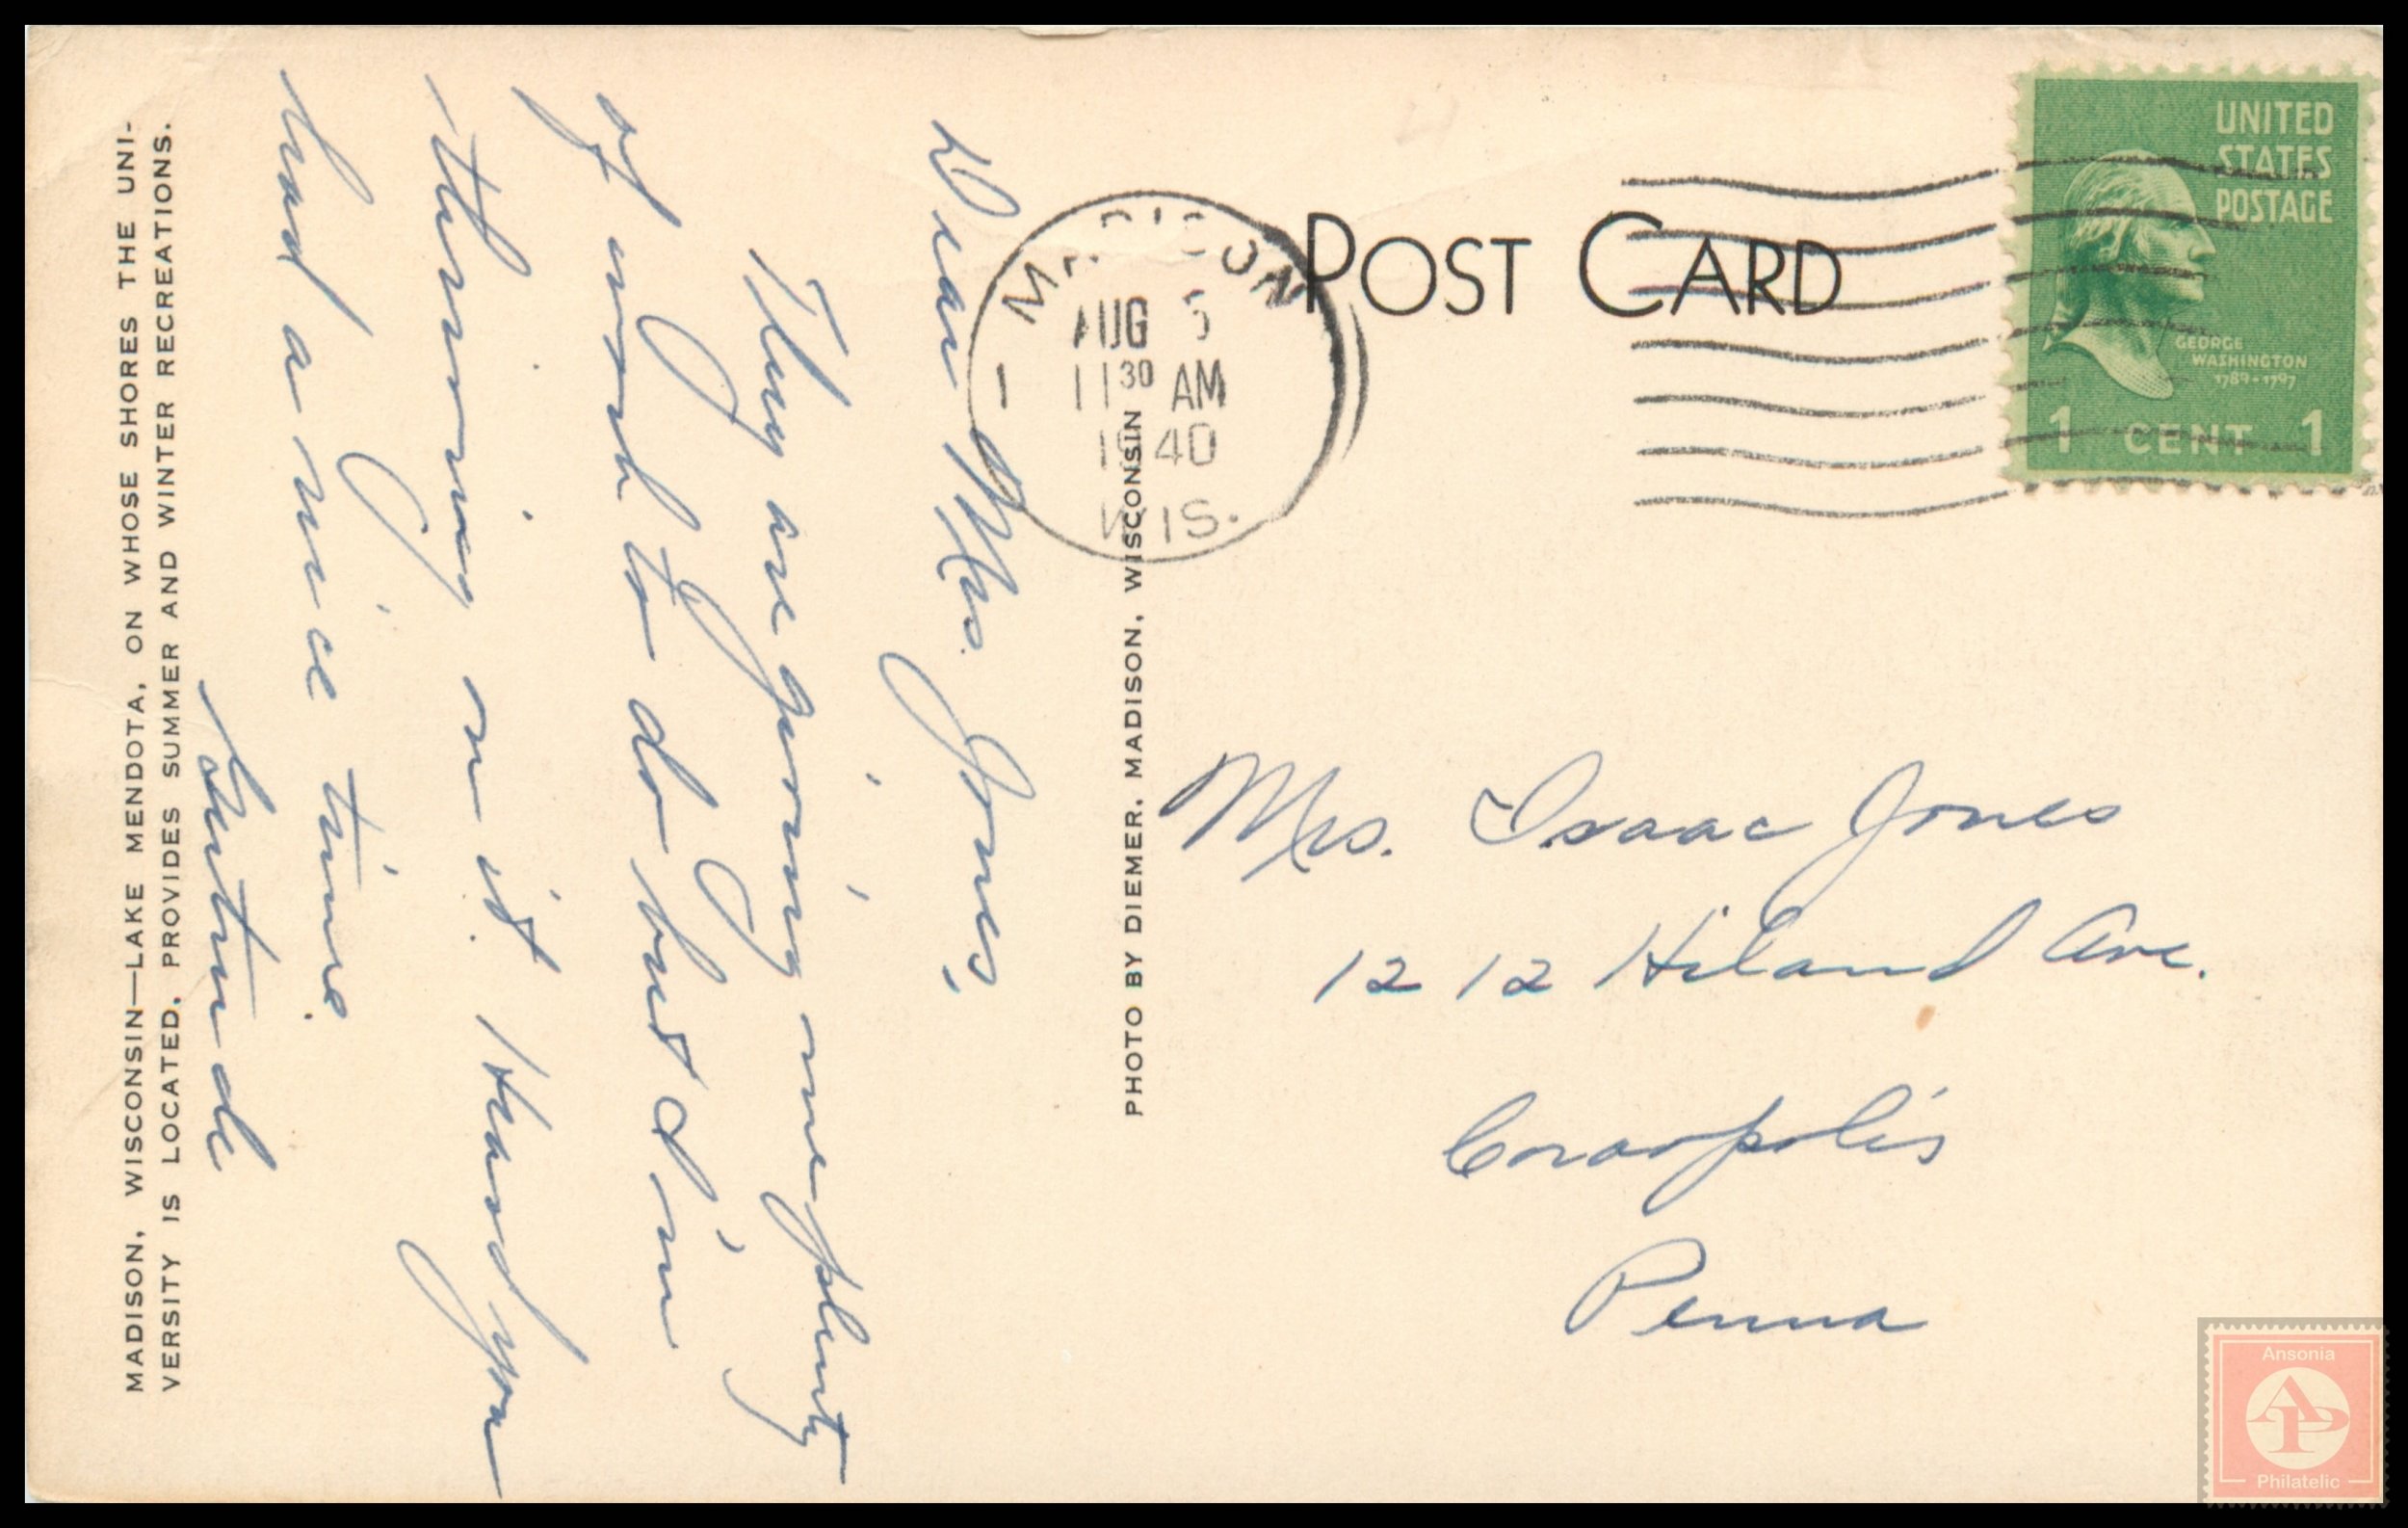 MADISON, WISCONSIN—LAKE MENDOTA, ON WHOSE SHORES THE UNI-
VERSITY IS LOCATED, PROVIDES SUMMER AND WINTER RECREATIONS.
Dear Mrs. Jones,
They are giving me plenty
of work to do but I'm
thriving on it. Heard you
had a nice time.
Gertrude
PHOTO BY DIEMER, MADISON, WISCONSIN
POST CARD
MADISON
AUG 5
11 30 AM
1940
WIS.
1
UNITED
STATES
POSTAGE
GEORGE
WASHINGTON
1789-1797
1 CENT 1
Mrs. Isaac Jones
1212 Hiland Ave.
Coraopolis
Penna
Ansonia
AP
Philatelic